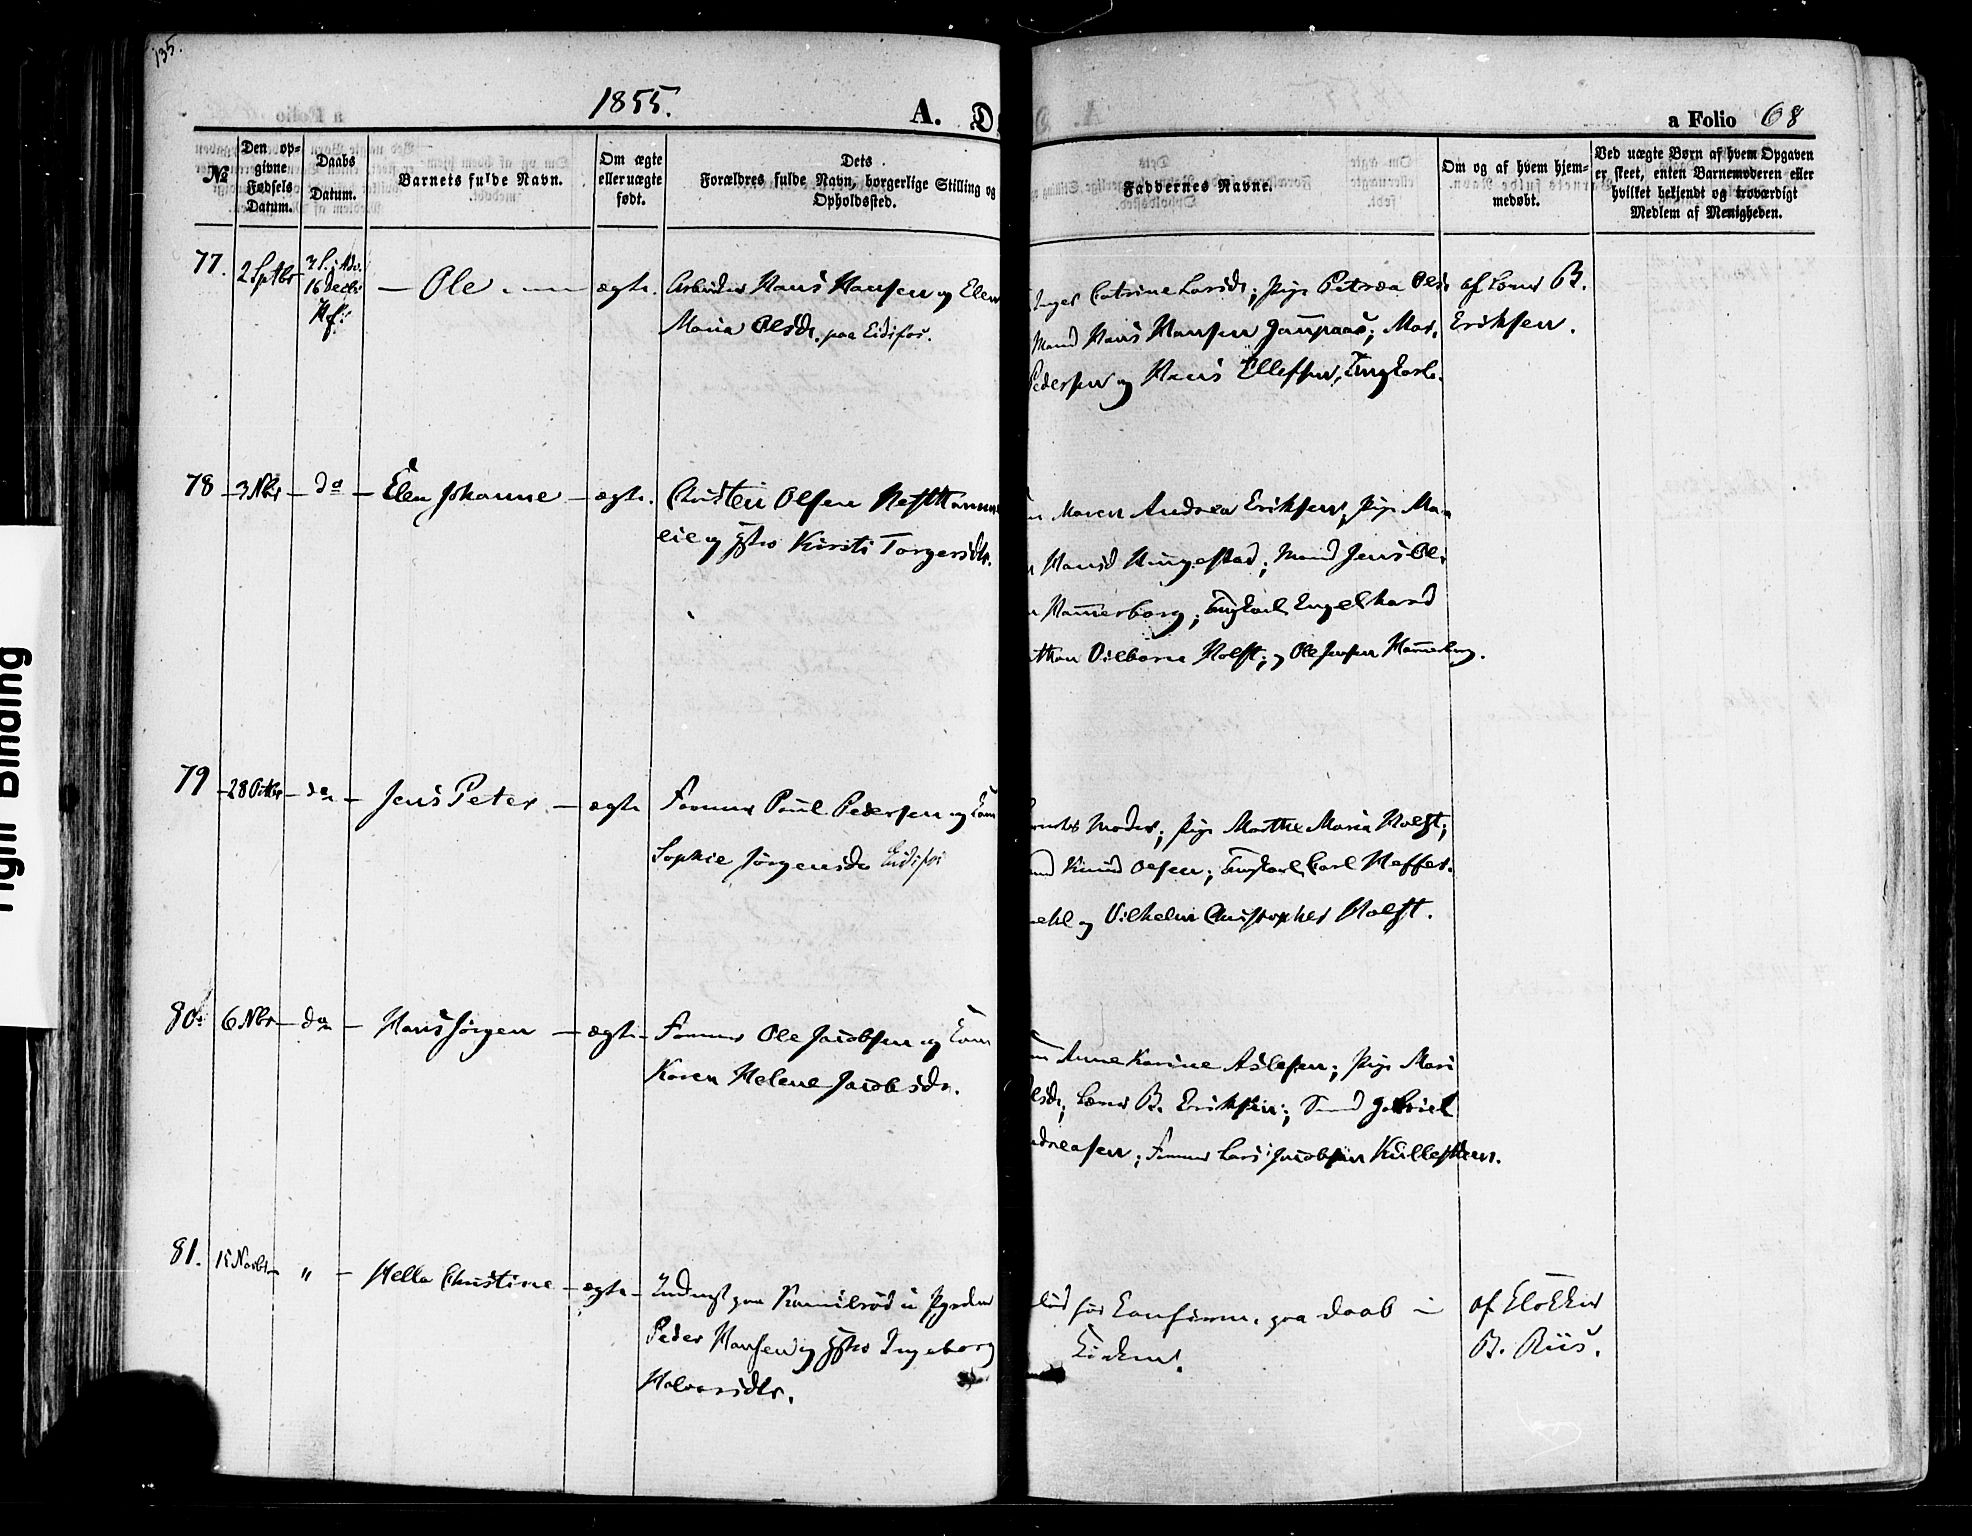 135.
1855.
A. D
a Folio 68
№
Den op-
givne
Fødsels
Datum.
Daabs
Datum.
Barnets fulde Navn.
Om ægte
eller uægte
født.
Dets
Forældres fulde Navn, borgerlige Stilling og
Opholdssted.
Faddernes Navne.
Om og af hvem hjem-
medøbt.
Ved uægte Børn af hvem Opgaven
er skeet, enten Barnemoderen eller
hvilket bekjendt og troværdigt
Medlem af Menigheden.
77.
2 Sptbr
3 S. i Adv.
16 Decbr
— Ole
ægte.
Arbeider Hans Hansen og Elen
Maria Olsdr. paa Eidsfos.
Inger Catrine Larsdr; Pige Petrea Olsdr
Mand Hans Hansen
Pedersen og Hans Ellefsen, Ungkarle.
af Lærer B.
Eriksen.
78 — 3 Nbr — do — Elen Johanne — ægte.
Christen Olsen
eie og Hstr Kirsti Torgersdtr.
Maren Andrea Eriksen, Pige
Mand Jens Ol-
Hannerborg; Ungkarl Engelhard
Holst; og Ole Jensen
79 — 28 Octbr — do — Jens Peter — ægte
Former Poul Pedersen og Kone
Sophie Jørgensdr Eidsfos
Moder; Pige Marthe Maria Holst;
Knud Olsen; Ungkarl Carl Heffer-
mehl og Vilhelm Christopher Holst.
80. 6 Nbr — do — Hans Jørgen — ægte —
Former Ole Jacobsen og Kone
Karen Helene Jacobsdr.
Anne Karine Aslesen; Pige Mari
Lærer B. Eriksen; Smed Gabriel
Andreasen; Former Lars Jacobsen
81. 15 Novbr — " — Helle Christine — ægte —
Peder Hansen og Hstr Ingeborg
Halvorsdtr.
død før Confirm. paa Daab i
Kirken.
af Klokker
B. Riis.
Tight Binding